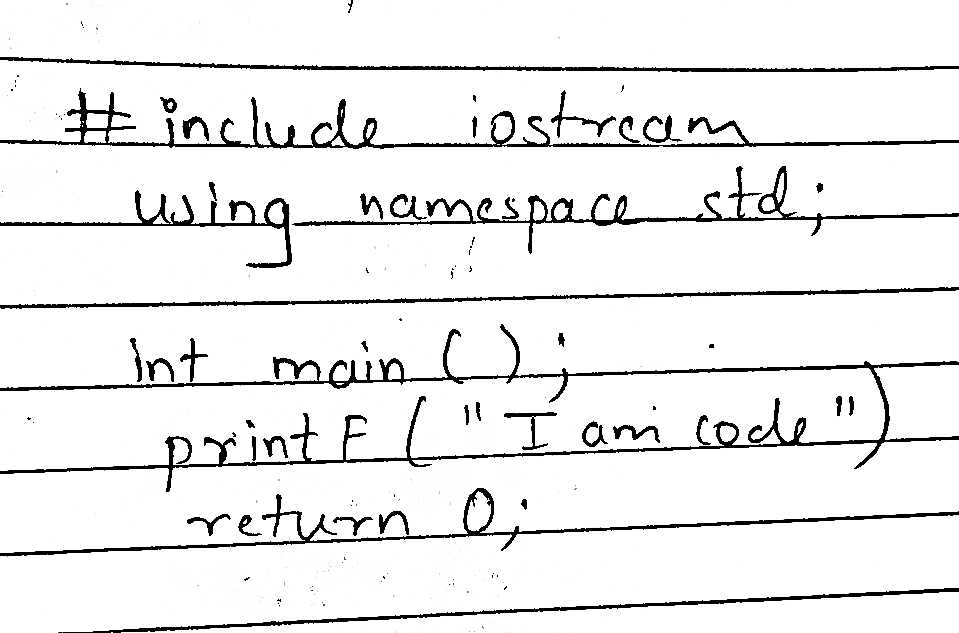 # include iostream
using namespace std;
int main ( ) ;
printF ( " I am code " )
return 0;